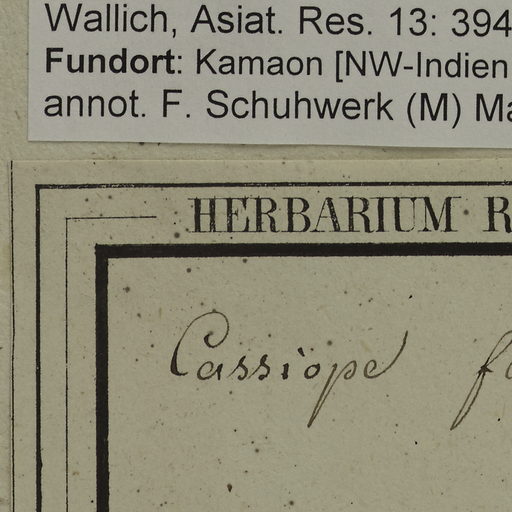 Wallich, Asiat. Res. 13: 394
Fundort: Kamaon [NW-Indien
annot. F. Schuhwerk (M) Ma
HERBARIUM R
Cassiope f